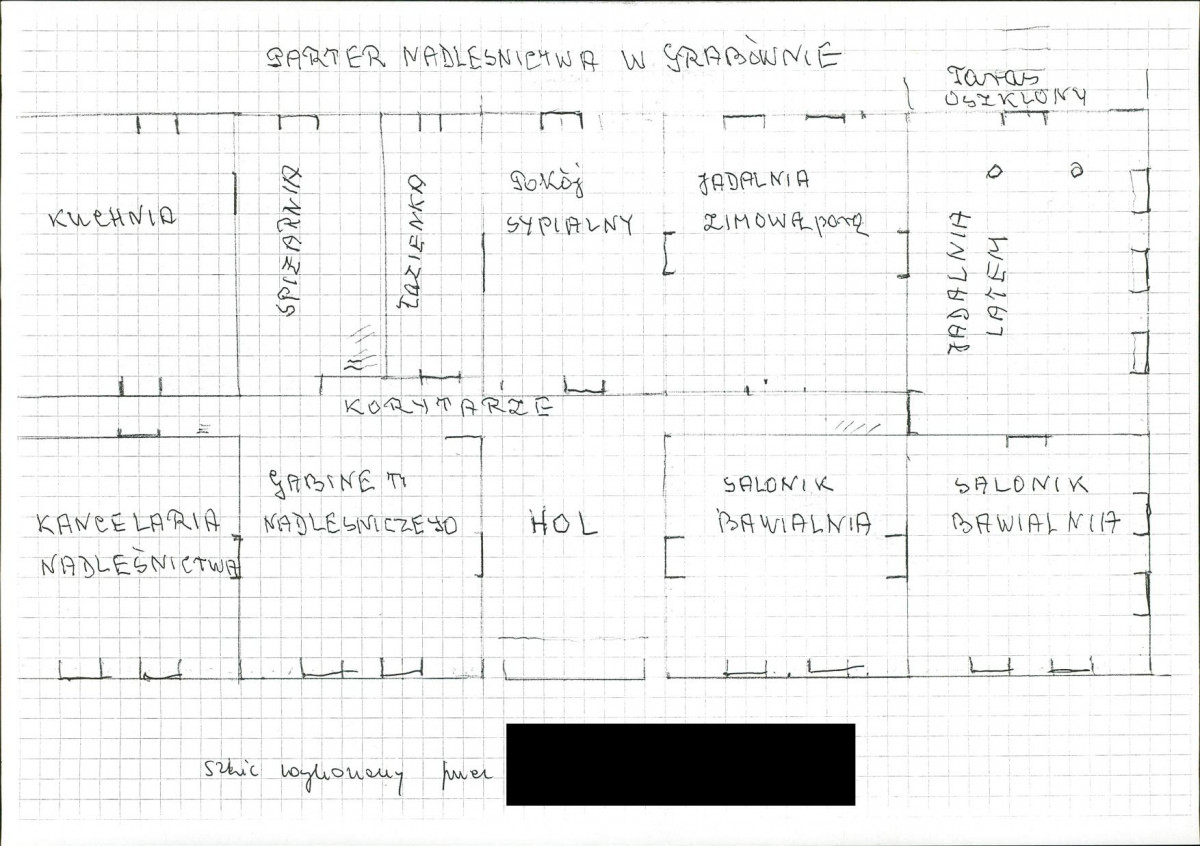 PARTER NADLEŚNICTWA W GRABÓWNIE
Taras
OSZKLONY
KUCHNIA
SPIŻARNIA
ŁAZIENKA
POKÓJ
SYPIALNY
JADALNIA
ZIMOWĄ porą
JADALNIA
LATEM
KORYTARZE
KANCELARIA
NADLEŚNICTWA
GABINET
NADLESNICZEGO
HOL
SALONIK
BAWIALNIA
SALONIK
BAWIALNIA
Szkic wykonany przez